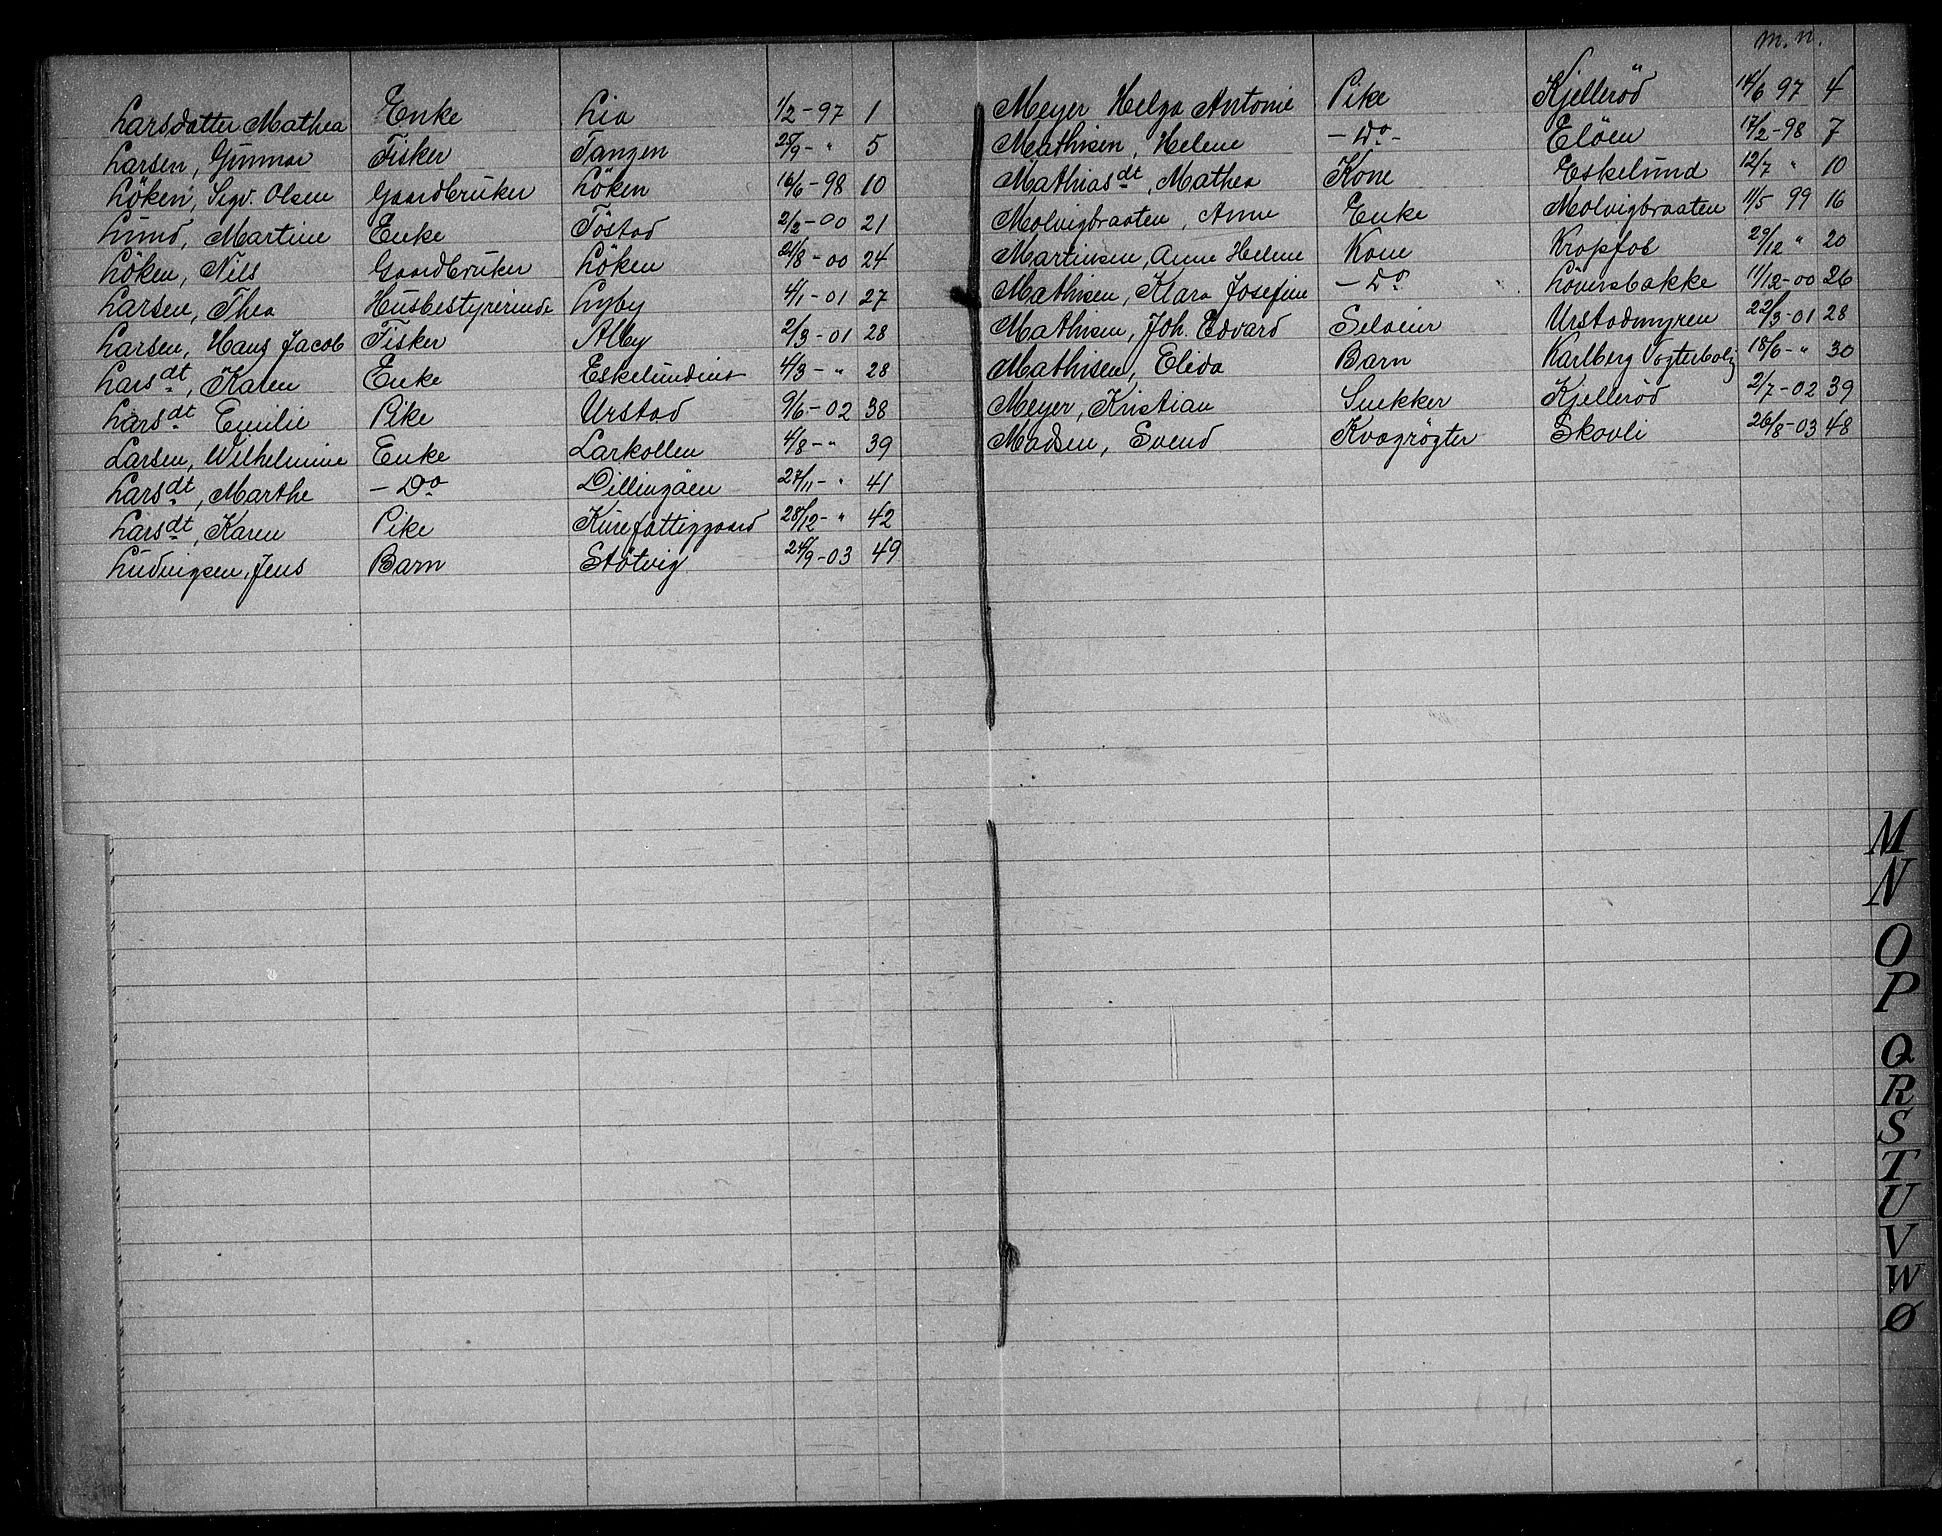 Larsdatter Mathea Enke Lia 1/2-97 1
Larsen, Gunnar Fisker Tangen 25/9-" 5
Löken, Sigv. Olsen Gaardbruker Löken 16/6-98 10
Lund, Martine Enke Töstad 2/2-00 21
Löken, Nils Gaardbruker Löken 24/8-00 24
Larsen, Thea Husbestyrerinde Lyby 4/1-01 27
Larsen, Hans Jacob Fisker Alby 2/3-01 28
Larsdt, Karen Enke Eskelundint 4/3-" 28
Larsdt Emilie Pike Urstad 9/6-02 38
Larsen, Wilhelmine Enke Larkollen 4/8-" 39
Larsdt, Marthe - Do Dillingöen 27/11-" 41
Larsdt, Karen Pike Kurefattiggaard 28/12-" 42
Ludvigsen, Jens Barn Støtvig 24/9-03 49
m. n.
Meyer Helga Antonie Pike Kjelleröd 14/6 97 4
Mathisen, Helene - Do - Elöen 17/2-98 7
Mathiasdt, Mathea Kone Eskelund 12/7 " 10
Molvigbraaten, Anne Enke Molvigbraaten 11/5 99 16
Martinsen, Anne Helene Kone Kropfos 29/12 " 20
Mathisen, Klara Josefine - Do Löversbakke 11/12-00 26
Mathisen, Joh. Edvard Seloeier Urstadmyren 22/3-01 28
Mathisen, Elida Barn Karlberg Vogterbolig 18/6-" 30
Meyer, Kristian Snekker Kjelleröd 2/7-02 39
Madsen, Svend Kvægrögter Skovli 26/8-03 48
M
N
O
P
Q
R
S
T
U
V
W
Ø